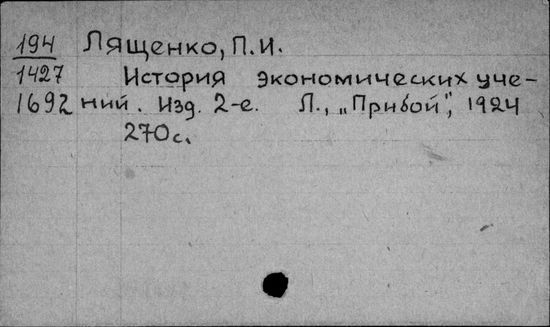 194 Лященко, П.И.
1427 История экономических уче-
1692 ний. Изд. 2-е. Л., „Прибой", 1924
270с.